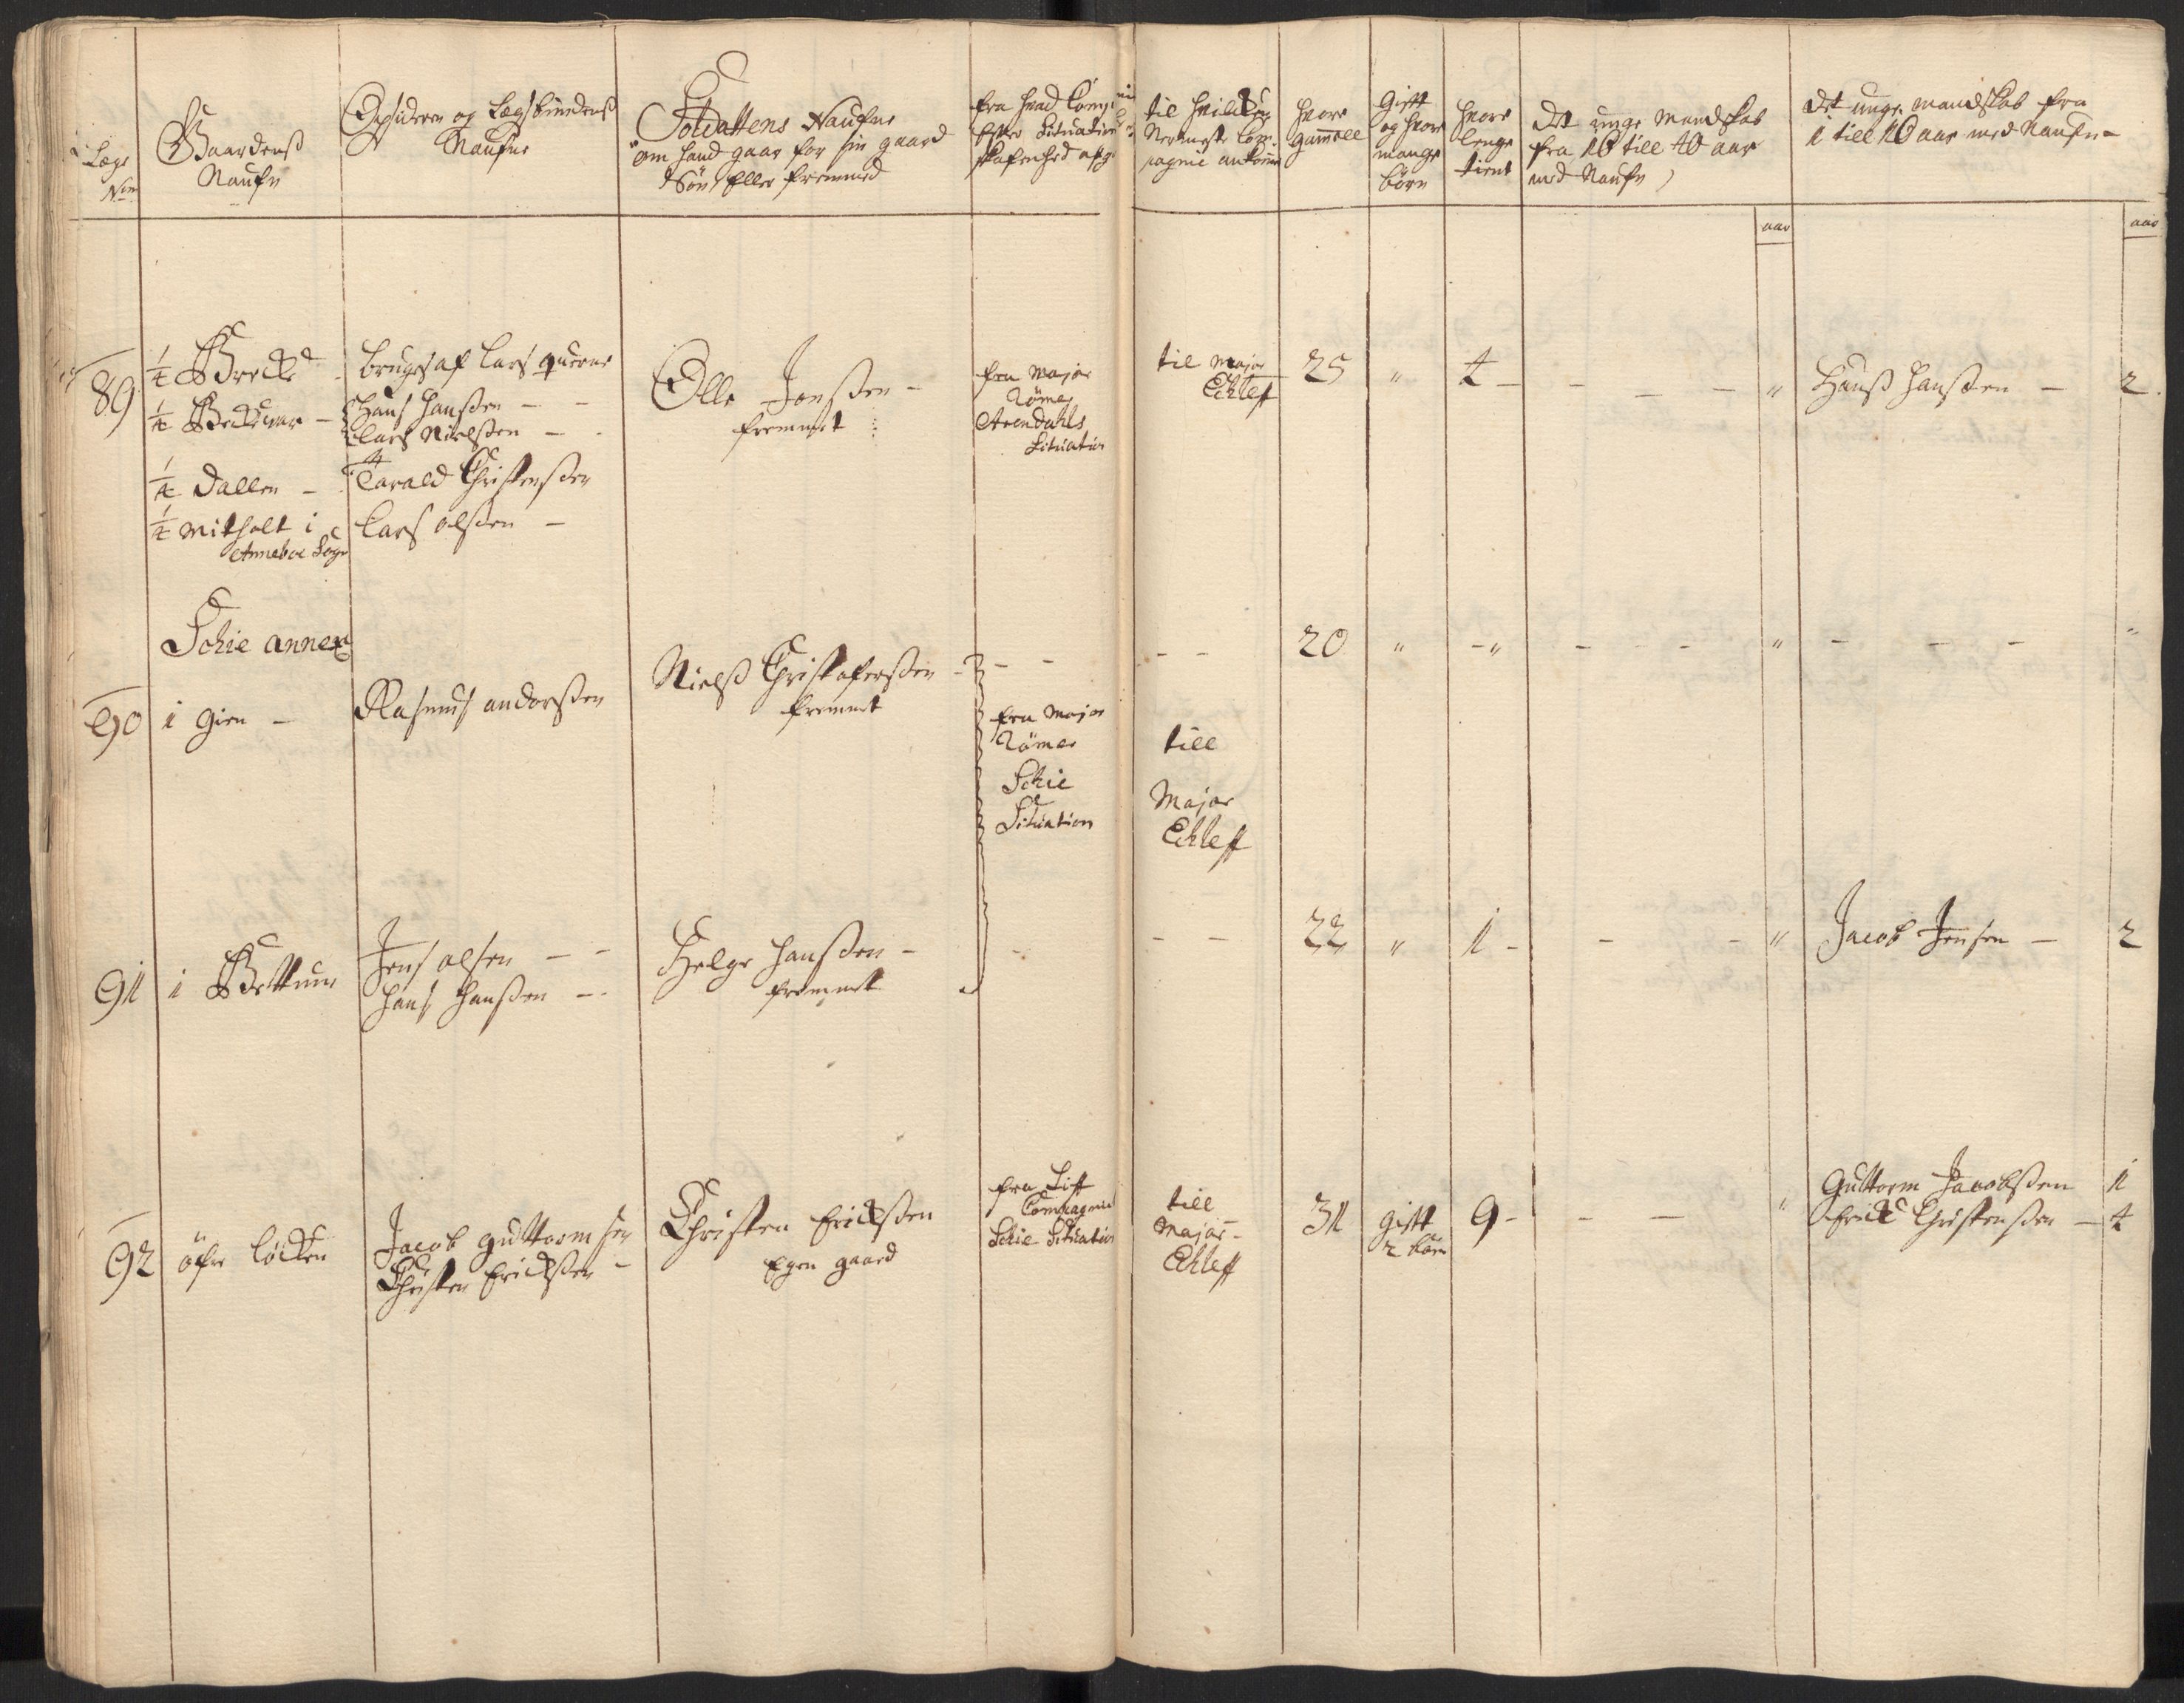 Legs
Nom
Gaardenß
Naufn
Opsidern og Legsbundens
Naufne
Soldattens Naufne
om hand gaar for sin gaard
Søn, Eller fremmed
fra hvad Comp
efter Situation
til hvilken
Nermeste Com¬
pagnie ankommer
hvor
gammell
Gift
og hvor
mange
börn
hvor
lenge
tient
Det unge Mandskab
fra 16 till 40 aar
med Naufn
aar
Det unge mandskab fra
1 till 16 aar med Naufn -
aar
89
1/4 Brecke
1/4
1/4 Dallen -
1/4 Mitholt i
Anneboe Sogn
bruges af Lars
Hans Hanßen - -
Lars Nielsßen - -
Tarald Christensßen
Lars olßen -
Olle Jonßen -
fremmet
fra Major
Römer
Arendahls
Situation
til Major
Echleff
25 " 4 - - - " Hanß Hanßen - 2
Schie annex
90 1 gien - Rasmus andersßen
Nielß Christofersßen -
fremmet
- -
fra Major
Römer
Schie
Situation
- -
till
Major
Echleff
20 " - " - - - " - - - "
91 1 Bettum
Jens olsen - -
Hans Hanßen - -
Helge Hanßen -
fremmet
- -
22 " 1 - - - " Jacob Jensen - 2
92 öfre Löcken
Jacob guttormsen
Christen Ericksßen -
Christen Ericksßen
Egen gaard
fra Liff
Compagnie
Schie Situation
till
Major -
Echleff
31 gift
2 börn
9 - - - "
Guttorm Jacobsßen 1
Erick Christensßen - 4